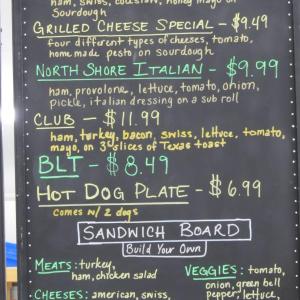 ham, swiss, coleslaw, honey mayo on
Sourdough
GRILLED CHEESE SPECIAL - $9.49
four different types of cheeses, tomato,
homemade pesto on sourdough
NORTH SHORE ITALIAN - $9.99
ham, provolone, lettuce, tomato, onion,
pickle, italian dressing on a sub roll
CLUB - $11.99
ham, turkey, bacon, swiss, lettuce, tomato,
mayo, on 3 slices of Texas toast
BLT - $8.49
HOT DOG PLATE - $6.99
comes w/ 2 dogs
SANDWICH BOARD
Build Your Own
MEATS: turkey,
ham, chicken salad
CHEESES: american, swiss,
VEGGIES: tomato,
onion, green bell
pepper, lettuce,